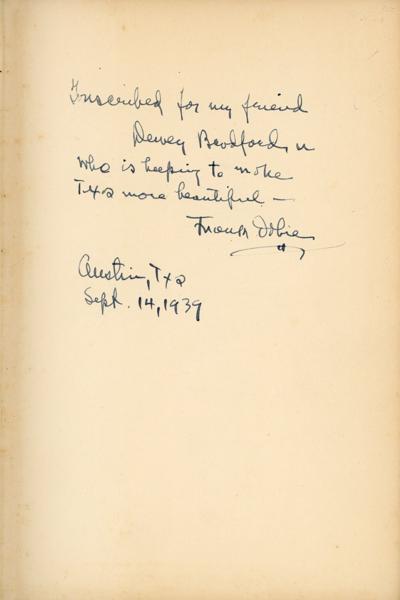 Inscribed for my friend
Dewey Bradford,
who is helping to make
Txs more beautiful —
Frank Dobie
Austin, Txs
Sept. 14, 1939